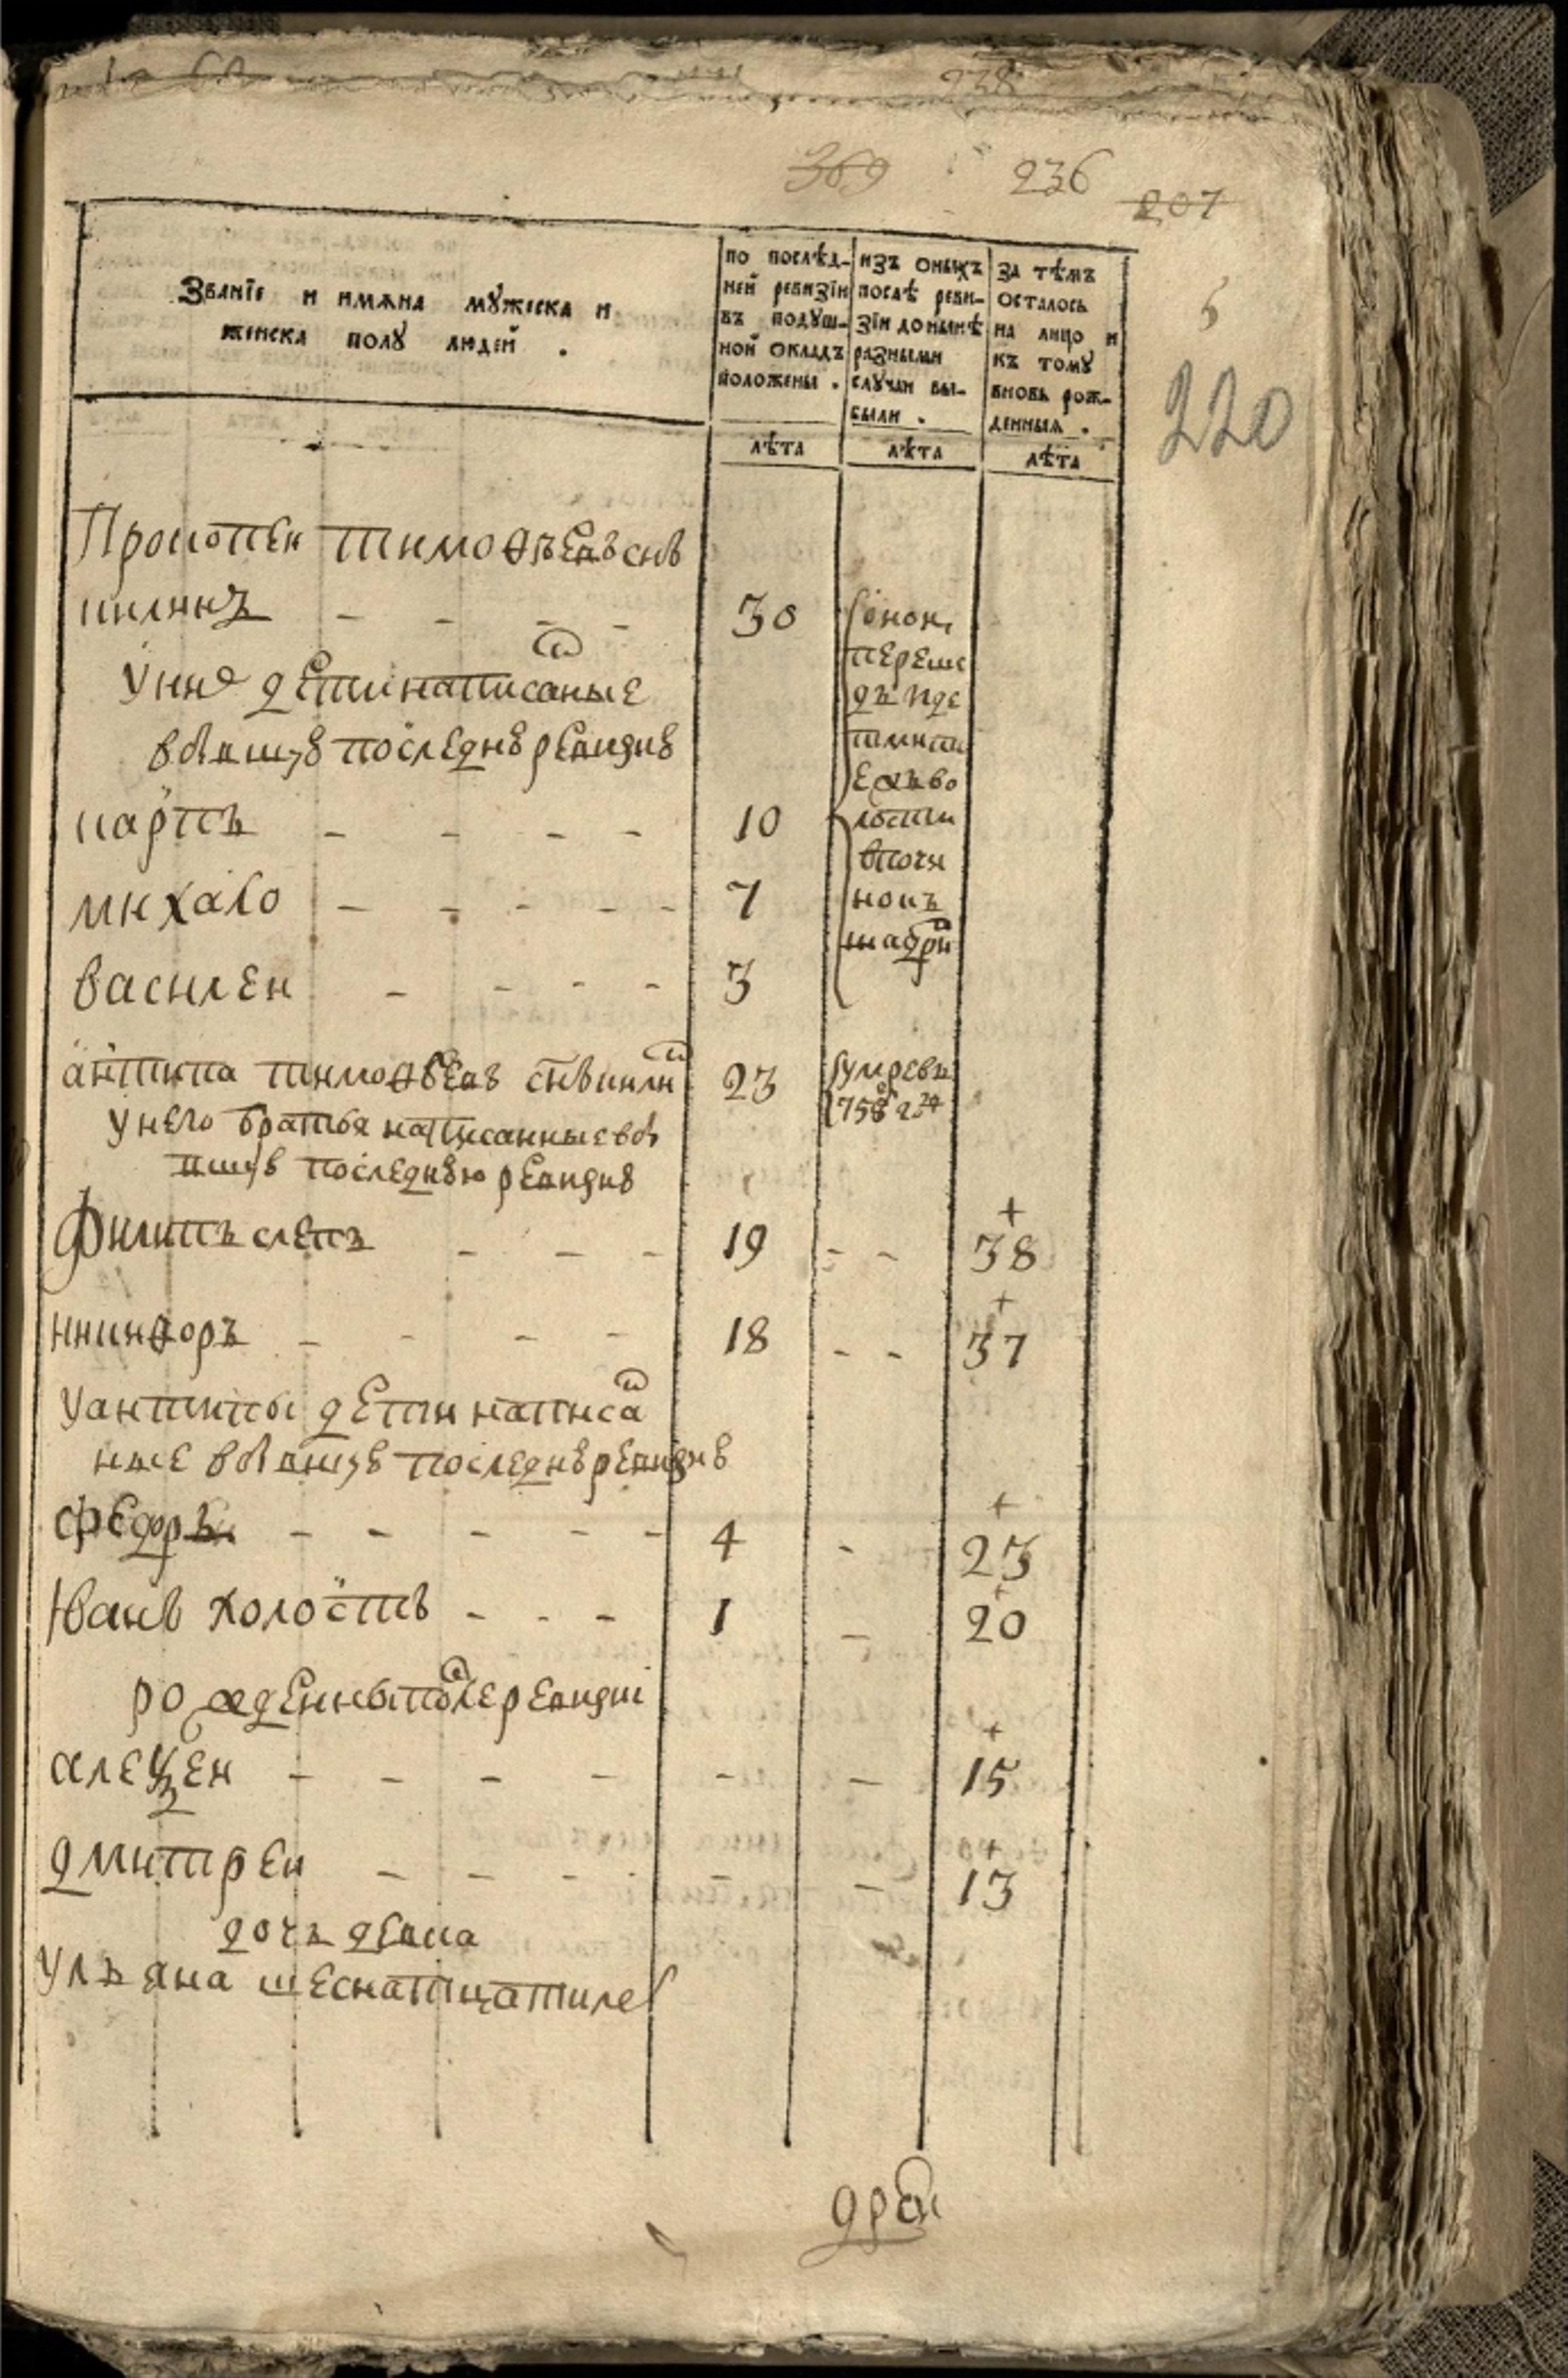 238
369 236 207
5
220
Званїе и имѧна мꙋжеска и
женска полꙋ людей .
по послѣд-
ней ревизїи
въ подꙋш-
ной окладъ
положены .
лѣта
изъ оныхъ
послѣ реви-
зїи до нынѣ
разными
слꙋчаи вы-
были .
лѣта
за тѣмъ
осталось
на лицо и
къ томꙋ
вновь рож-
денныѧ .
лѣта
Прокопеи тимоѳѣевъ снъ
килинъ - - - - 30
детми
перешо
волости
у нихъ дети написаные
в бывшую последнюю ревизию
карпъ - - - - 10
михаіло - - - - - 7
василеи - - - - 3
антипа тимоѳѣевъ снъ килин 23 умре въ
758 г де
у него братья написанные в бы
вшую последнюю ревизию
Филипъ слепъ - - - 19 - - 38
никиѳоръ - - - - 18 - - 37
у антипы дети написа
ные в бывшую последнюю ревизию
ѳедоръ - - - - - 4 - 23
Иванъ холостъ - - - 1 - 20
рожденны после ревизиі
алеѯеи - - - - - - 15
дмитреи - - - - - - 13
дочь девка
ульяна шеснатцати лет